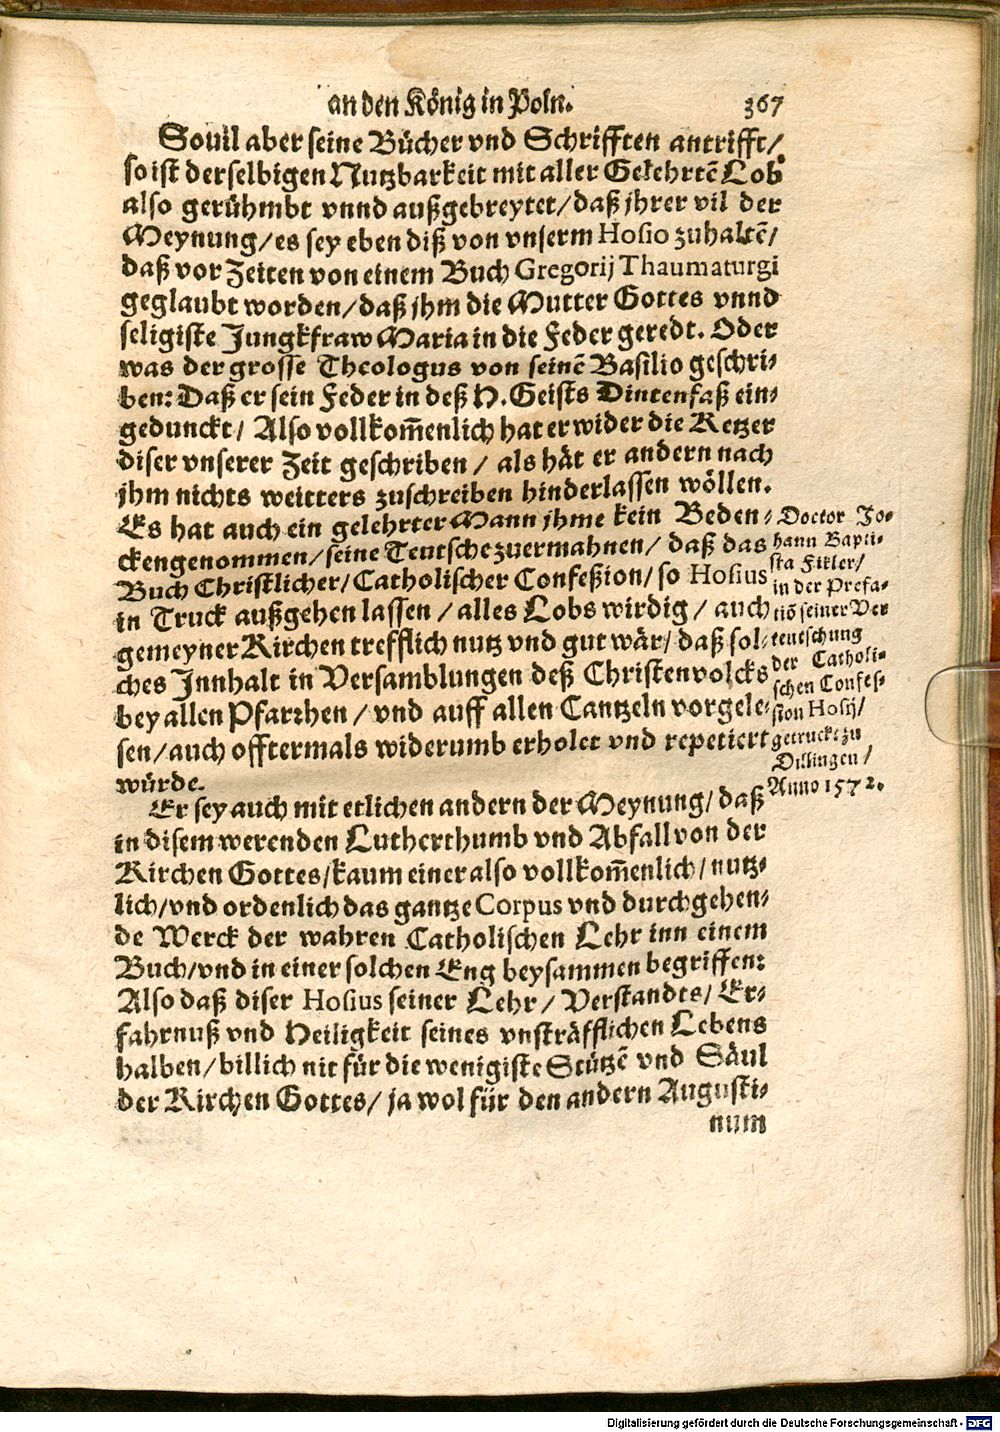 an den König in Poln. 367
Souil aber seine Bücher vnd Schrifften antrifft/
so ist derselbigen Nutzbarkeit mit aller Gelehrtē Lob
also gerühmbt vnnd außgebreytet/daß jhrer vil der
Meynung/es sey eben diß von vnserm Hosio zuhaltē/
daß vor Zeiten von einem Buch Gregorij Thaumaturgi
geglaubt worden/daß jhm die Mutter Gottes vnnd
seligiste Jungkfraw Maria in die Feder geredt. Oder
was der grosse Theologus von seinē Basilio geschri-
ben: Daß er sein Feder in deß H. Geists Dintenfaß ein-
gedunckt/ Also vollkom̄enlich hat er wider die Ketzer
diser vnserer Zeit geschriben / als hät er andern nach
jhm nichts weitters zuschreiben hinderlassen wöllen.
Es hat auch ein gelehrter Mann jhme kein Beden-
ckengenommen/seine Teutsche zuermahnen/ daß das
Buch Christlicher/Catholischer Confeßion/so Hosius
in Truck außgehen lassen / alles Lobs wirdig / auch
gemeyner Kirchen trefflich nutz vnd gut wär/ daß sol-
ches Innhalt in Versamblungen deß Christenvolcks
bey allen Pfarrhen / vnd auff allen Cantzeln vorgele-
sen/auch offtermals widerumb erholet vnd repetiert
würde.
Doctor Jo-
hann Bapti-
sta Fikler/
in der Prefa-
tiō seiner Ver
teutschung
der Catholi-
schen Confes-
sion Hosij/
getruckt zu
Dillingen/
Anno 1572.
Er sey auch mit etlichen andern der Meynung/daß
in disem werenden Lutherthumb vnd Abfall von der
Kirchen Gottes/kaum einer also vollkom̄enlich/nutz-
lich/vnd ordenlich das gantze Corpus vnd durchgehen-
de Werck der wahren Catholischen Lehr inn einem
Buch/vnd in einer solchen Eng beysammen begriffen:
Also daß diser Hosius seiner Lehr/ Verstandts/ Er-
fahrnuß vnd Heiligkeit seines vnsträfflichen Lebens
halben/billich nit für die wenigiste Stützē vnd Säul
der Kirchen Gottes/ ja wol für den andern Augusti-
num
Digitalisierung gefördert durch die Deutsche Forschungsgemeinschaft - DFG